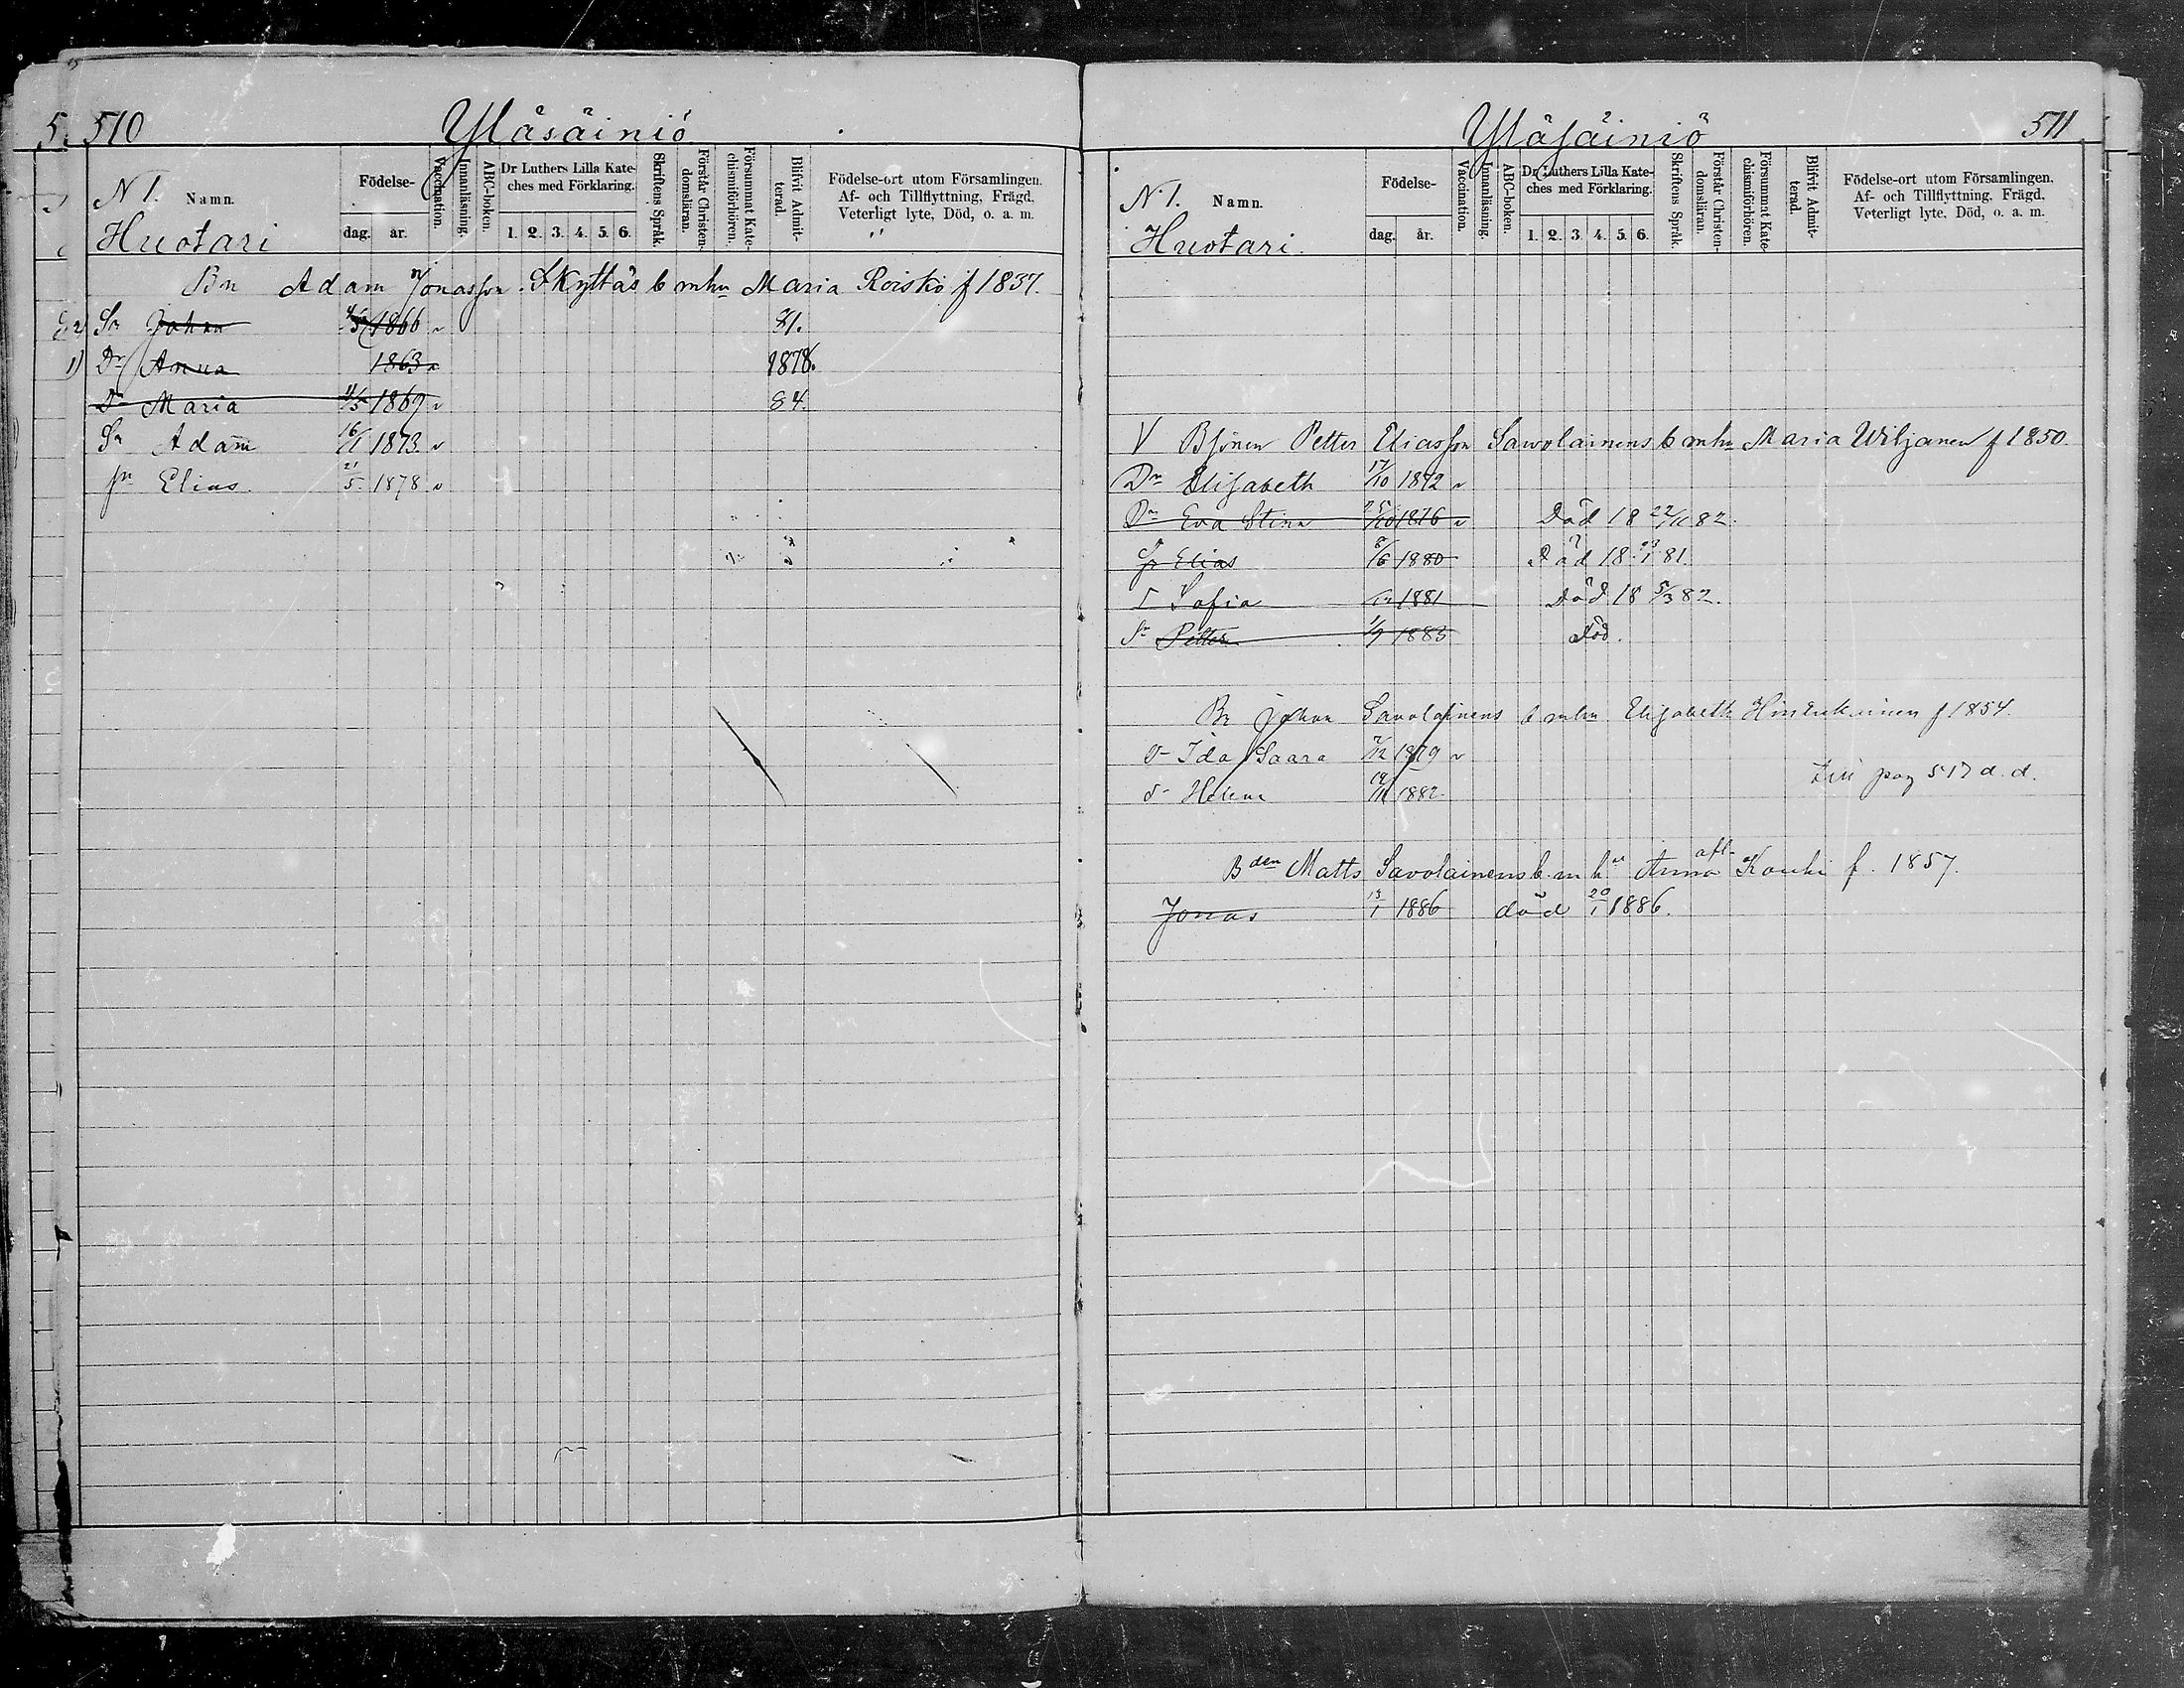 5. 510 Yläsäiniö
N 1. Namn. Födelse- dag. år. Vaccination. Innanläsning. ABC-boken. Dr Luthers Lilla Kateches med Förklaring. 1. 2. 3. 4. 5. 6. Skriftens Språk. Förstår Christendomsläran. Försummat Katechismiförhören. Blifvit Admitterad. Födelse-ort utom Församlingen. Af- och Tillflyttning, Frägd, Veterligt lyte, Död, o. a. m.
Huotari
Bn Adam Jonasson Kyttäs b mhu Maria Roisko f 1837.
2) Sn Johan 1866 v 81.
1) Dr Anna 1863 v 1878.
Dr Maria 11/5 1869 v 84.
Sn Adam 16/1 1873 v
Sn Elias. 21/5 1878 v
Yläsäiniö 511
N 1. Namn. Födelse- dag. år. Vaccination. Innanläsning. ABC-boken. Dr Luthers Lilla Kateches med Förklaring. 1. 2. 3. 4. 5. 6. Skriftens Språk. Förstår Christendomsläran. Försummat Katechismiförhören. Blifvit Admitterad. Födelse-ort utom Församlingen. Af- och Tillflyttning, Frägd, Veterligt lyte, Död, o. a. m.
Huotari.
V Bsonen Petter Eliasson Sawolainens b mhu Maria Wiljanen f 1850
Dr Elisabeth 17/10 1872 v
Dr Eva Stina 25/10 1876 v Död 18 22/11 82.
Sn Elias 8/6 1880 Död 18 81.
D Sofia 1881 Död 18 5/3 82.
Sn Petter 1/9 1883 Död.
Br Johan Savolainens b mhu Elisabeth Hinrikainen f 1854.
D Ida Saara 7/12 1879 v
D Helena 19/11 1882. pag 517 d. d.
Bden Matts Savolainens b. m hu Anna afl. Kouhi f. 1857.
Jonas 13/1 1886 död 20/1 1886.